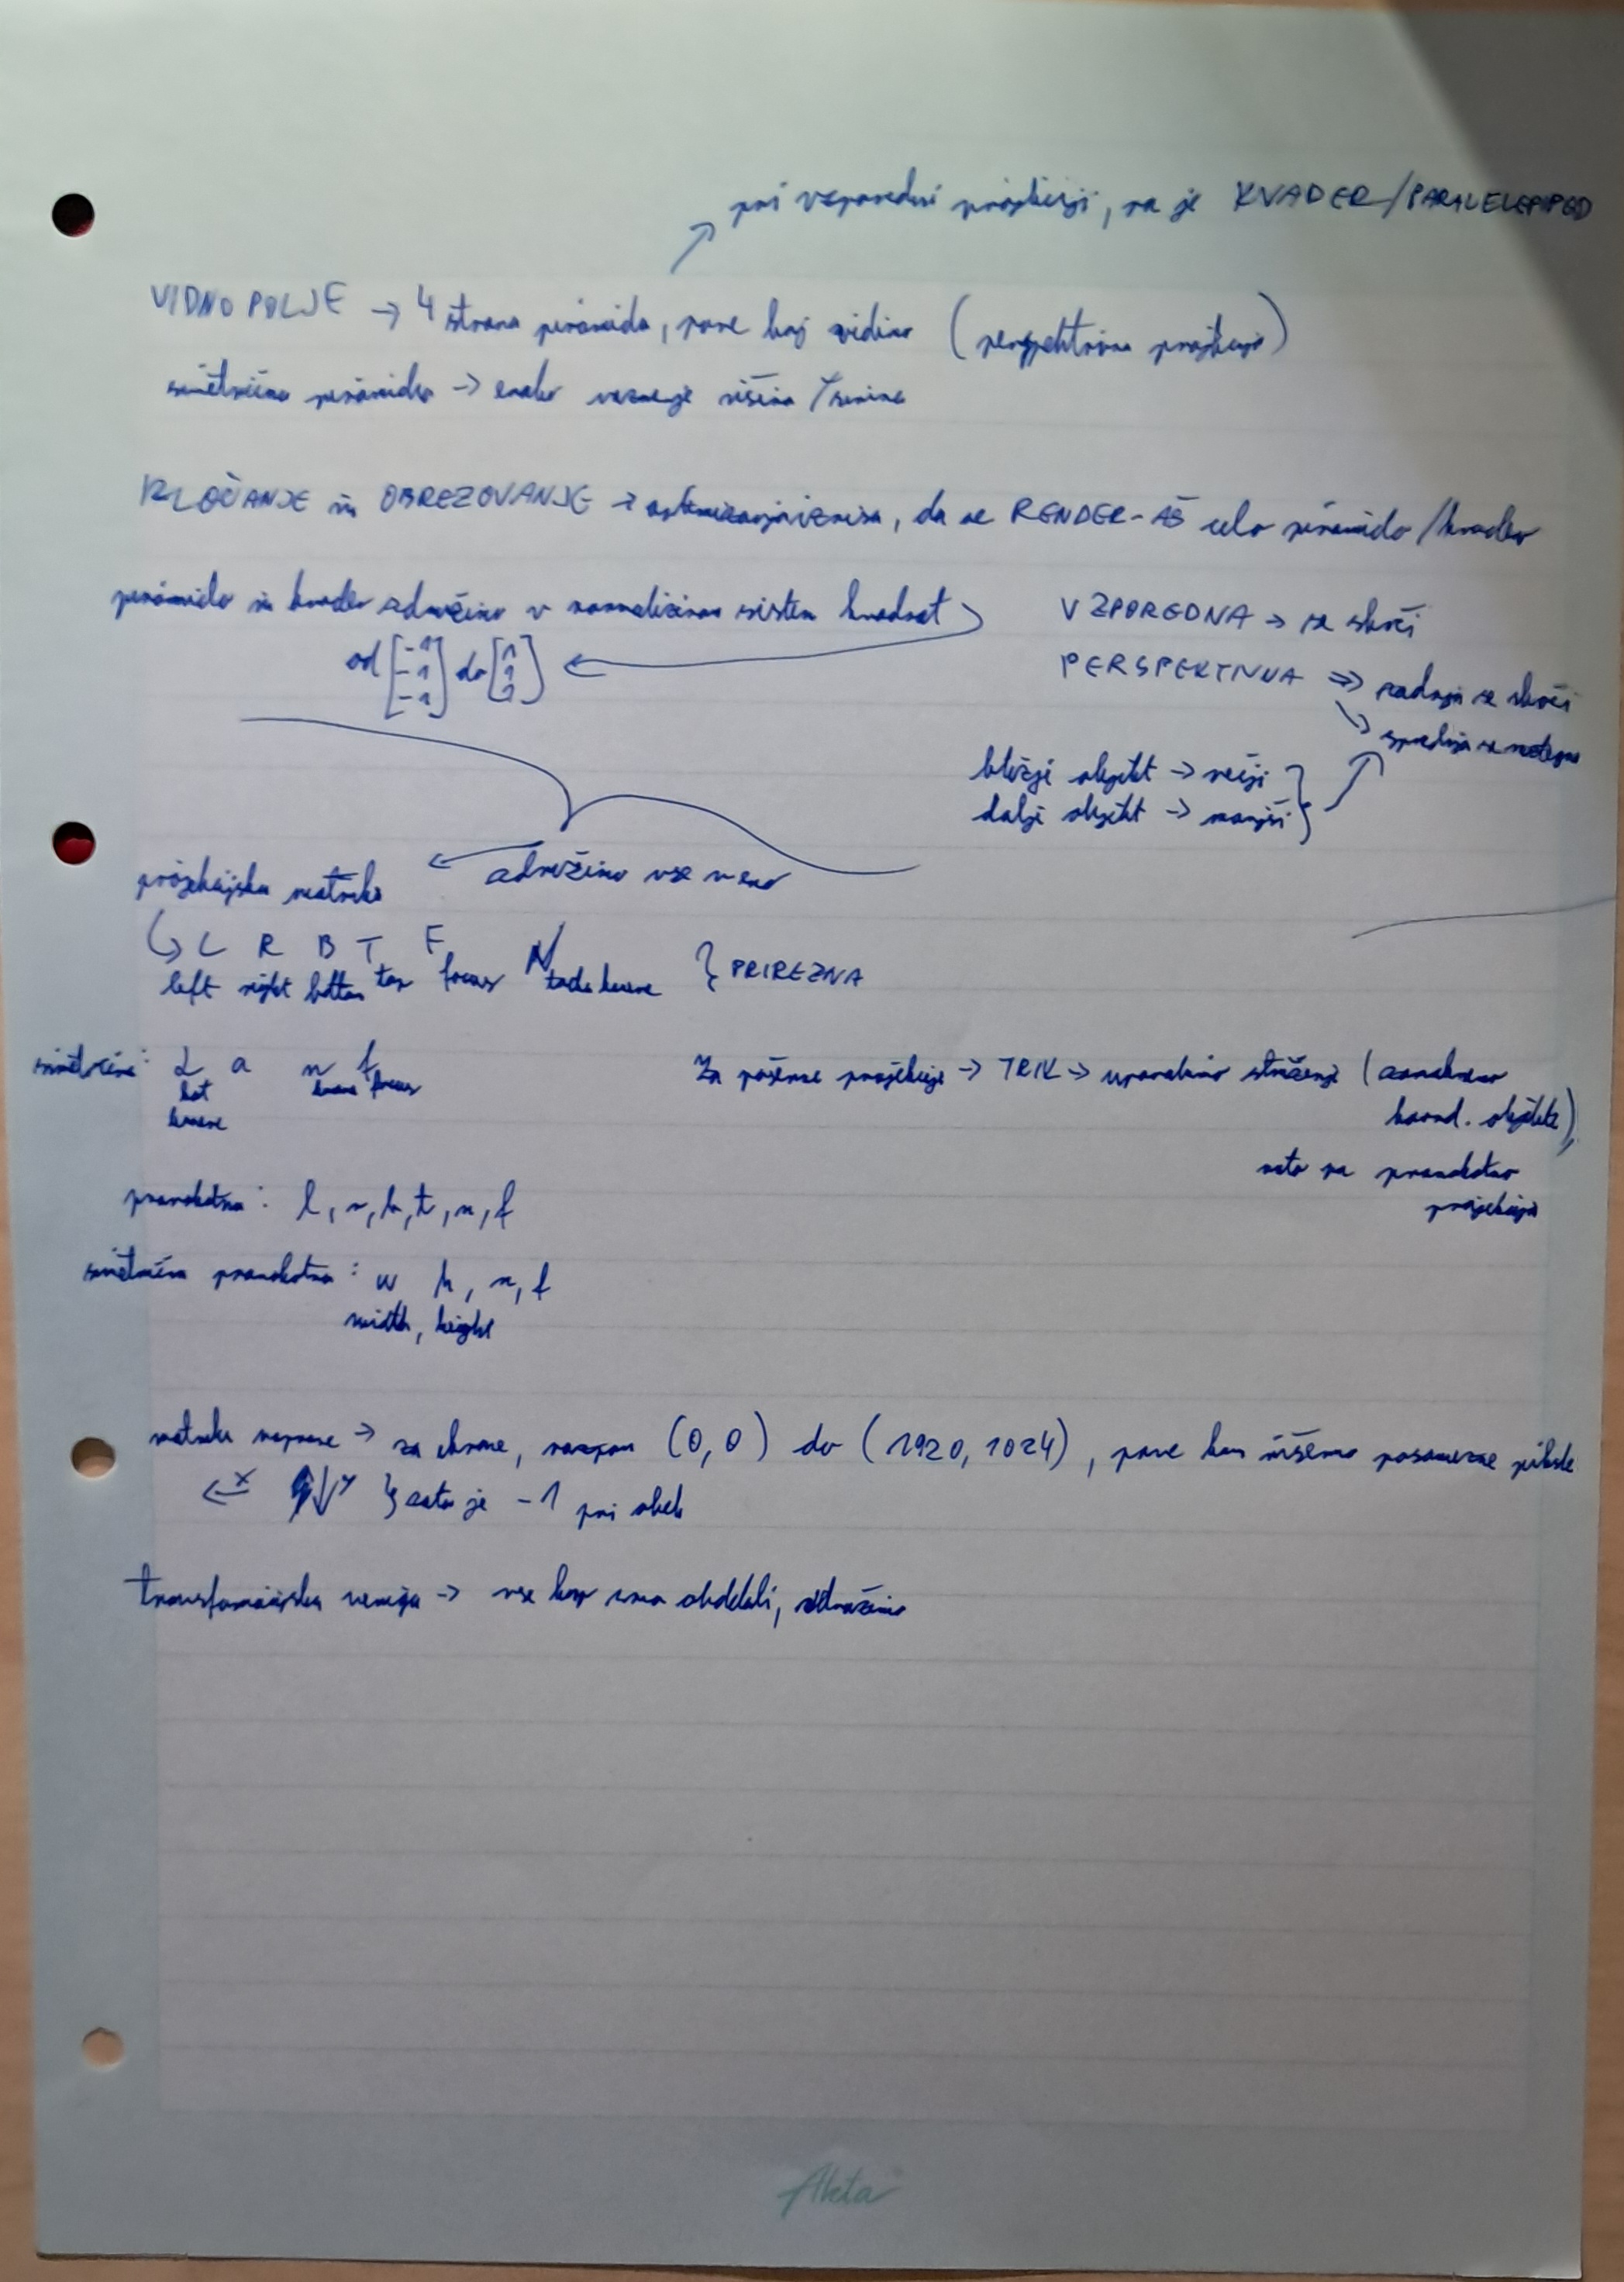 pri vzporedni projekciji, pa je KVADER/PARALELEPIPED
VIDNO POLJE → 4 strana piramida, pove kaj vidimo (perspektivna projekcija)
simetrična piramida → enako razmerje višina/širina
IZLOČANJE in OBREZOVANJE → optimizacija izrisa, da ne RENDER-AŠ celo piramido/kvader
piramido in kvader združimo v normaliziran sistem kvadrat
od [-1 -1 -1] do [1 1 1]
VZPOREDNA → se skrči
PERSPEKTIVNA → zadaj se skrči
→ spredaj se raztegne
bližji objekt → večji
dalji objekt → manjši
združimo vse v eno
projekcijska matrika
↳ L R B T F N
left right bottom top focus } PRIREZNA
simetrična: α a n f
kot focus
kamere
Za poševne projekcije → TRIK → uporabimo striženje (
koord. objekta),
nato pa pravokotno
projekcijo
pravokotna: l, r, b, t, n, f
simetrična pravokotna: w h, n, f
width, height
matrika naprave → za ekrane, razpon (0, 0) do (1920, 1024), pove kam rišemo posamezne piksle
← x ↓ y } zato je -1 pri obeh
transformacijska veriga → vse kar smo obdelali, združimo
Akta